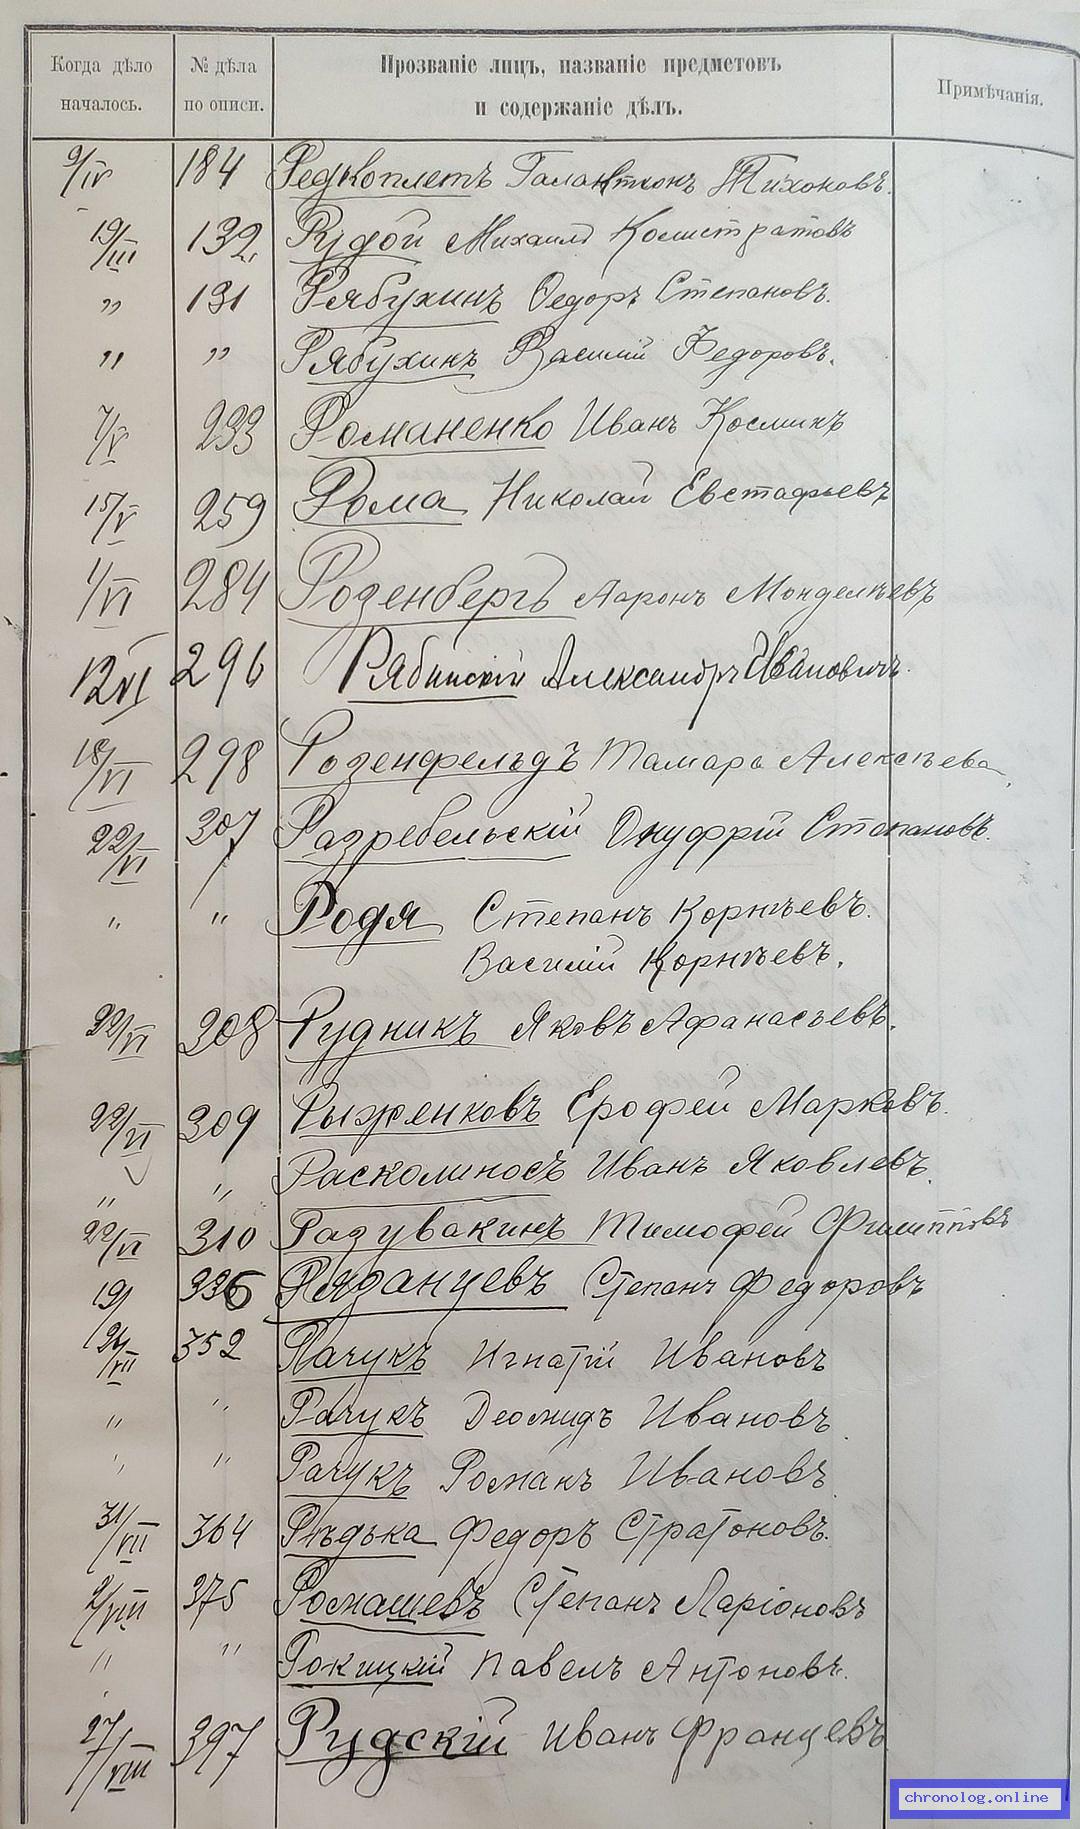 Когда дѣло началось. № дѣла по описи. Прозваніе лицъ, названіе предметовъ и содержаніе дѣлъ. Примѣчанія.
9/IV 184 Редкоплетъ Галактіонъ Тихоновъ.
19/III 132. Рудой Михаилъ Калистратовъ
" 131 Рябухинъ Федоръ Степановъ.
" " Рябухинъ Василій Федоровъ.
7/V 233 Романенко Иванъ Косминъ
15/V 259 Рома Николай Евстафьевъ
1/VI 284 Розенбергъ Ааронъ Монделѣевъ
12/VI 296 Рябинскій Александръ Ивановичъ.
18/VI 298 Розенфельдъ Тамара Алексѣева
22/VI 307 Разребельскій Онуфрій Степановъ.
" " Родя Степанъ Корнѣевъ.
Василій Корнѣевъ.
22/VI 308 Рудникъ Яковъ Афанасьевъ.
22/VI 309 Рыженковъ Ерофей Марковъ.
" " Расколиносъ Иванъ Яковлевъ.
22/VI 310 Разувакинъ Тимофей Филипповъ
19/ 336 Рязанцевъ Степанъ Федоровъ
24/VII 352 Рачукъ Игнатій Ивановъ
" " Рачукъ Деомидъ Ивановъ
" " Рачукъ Романъ Ивановъ
31/VII 364 Рѣдька Федоръ Стратоновъ.
2/VIII 375 Ромашевъ Степанъ Ларіоновъ
" " Рокицкій Павелъ Антоновъ.
27/VIII 397 Рудскій Иванъ Францевъ
chronolog.online